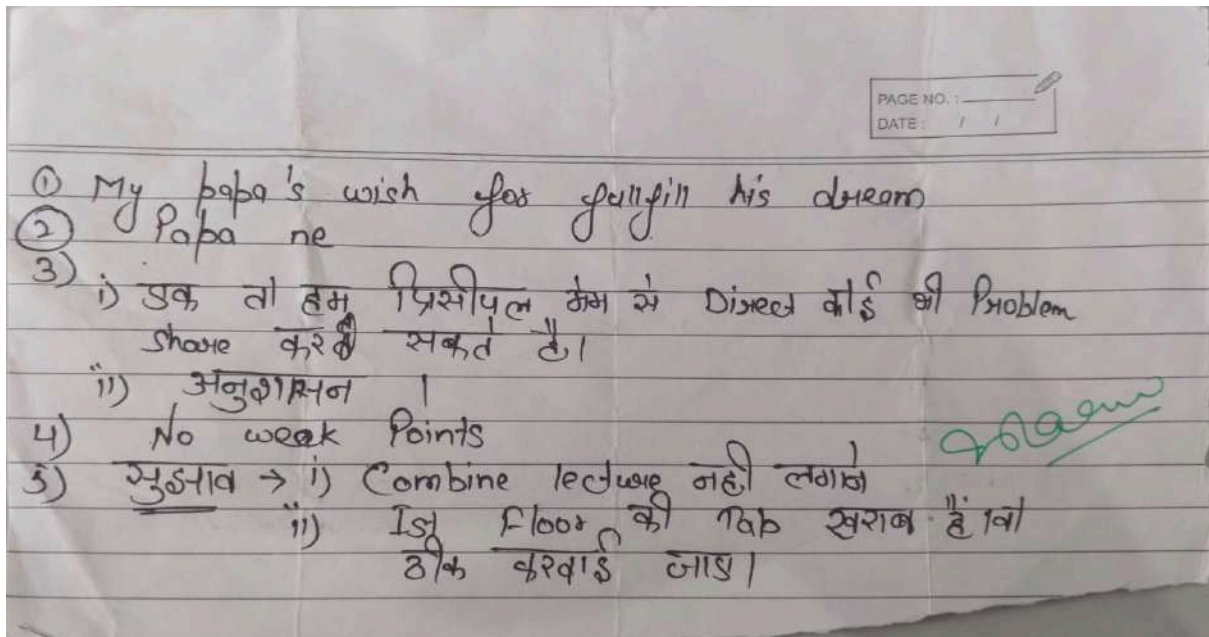 PAGE NO. :
DATE : / /
① My papa's wish for fullfill his dream
② Papa ne
3)
i) इक तो हम प्रिसीपल मेम से Direct कोई भी Problem
Share कर सकते है।
ii) अनुशासन ।
4) No weak Points
5) सुझाव → i) Combine lecture नही लगाने
ii) Ist Floor की Tab खराब हैं।वो
ठीक करवाई जाइ।